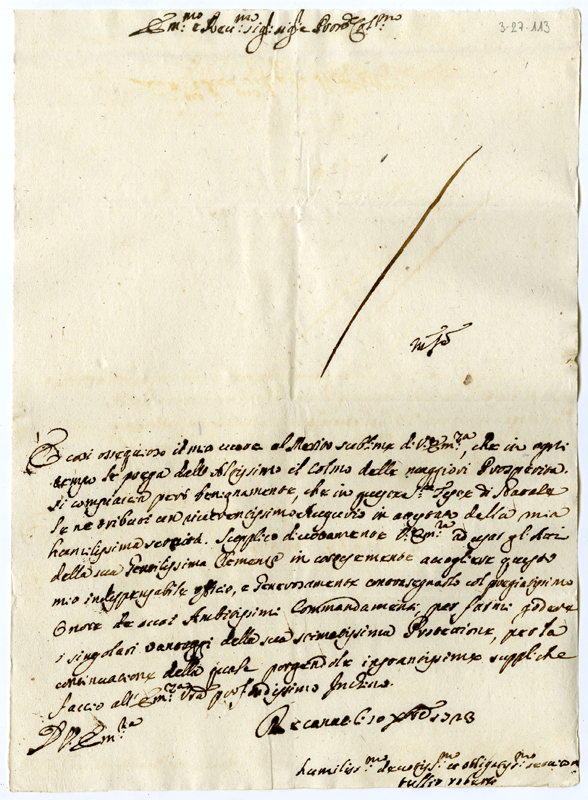 3-27-113
Em.mo e Rev.mo Sig.r Sig.r e Pron Col.mo
È così ossequioso il mio cuore al Merito sublime di V. Em.za, che in ogni
tempo le prega dallo Altissimo il Colmo delle maggiori Prosperità.
Si compiacerà però benignamente, che in queste S.te Feste di Natale
le ne tributi un riverentissimo Augurio in della mia
humilissima servitù. Supplico divotamente V. Em.za ad usar gli atti
della sua Gentilissima Clemenza in cortesemente accogliere questo
mio indispensabile officio, e generosamente contrasegnarlo col pregiatissimo
Onore de suoi Ambitissimi Commandamenti, per farmi godere
i singolari vantaggi della sua stimatissima Protezione, per la
continuazione della quale porgendole instantissime suppliche
faccio all' Em.za V.ra profondissimo Inchino.
D. V. Em.za
Recanati 10 Xbre 1723
humiliss.mo devotiss.mo et obligatiss.mo